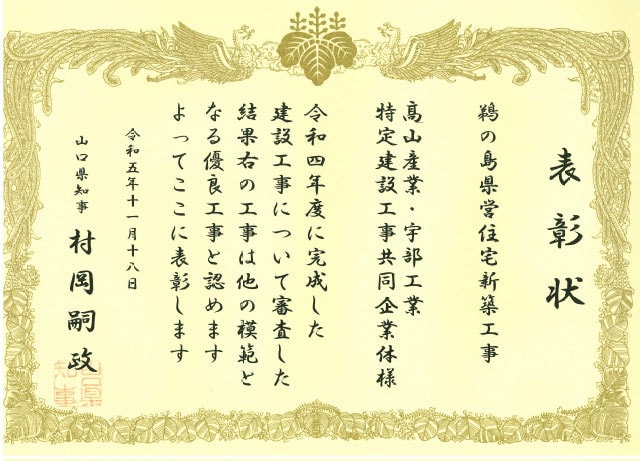 表彰状
鵜の島県営住宅新築工事
髙山産業・宇部工業
特定建設工事共同企業体様
令和四年度に完成した
建設工事について審査した
結果右の工事は他の模範と
なる優良工事と認めます
よってここに表彰します
令和五年十一月十八日
山口県知事 村岡嗣政
山口県
知事